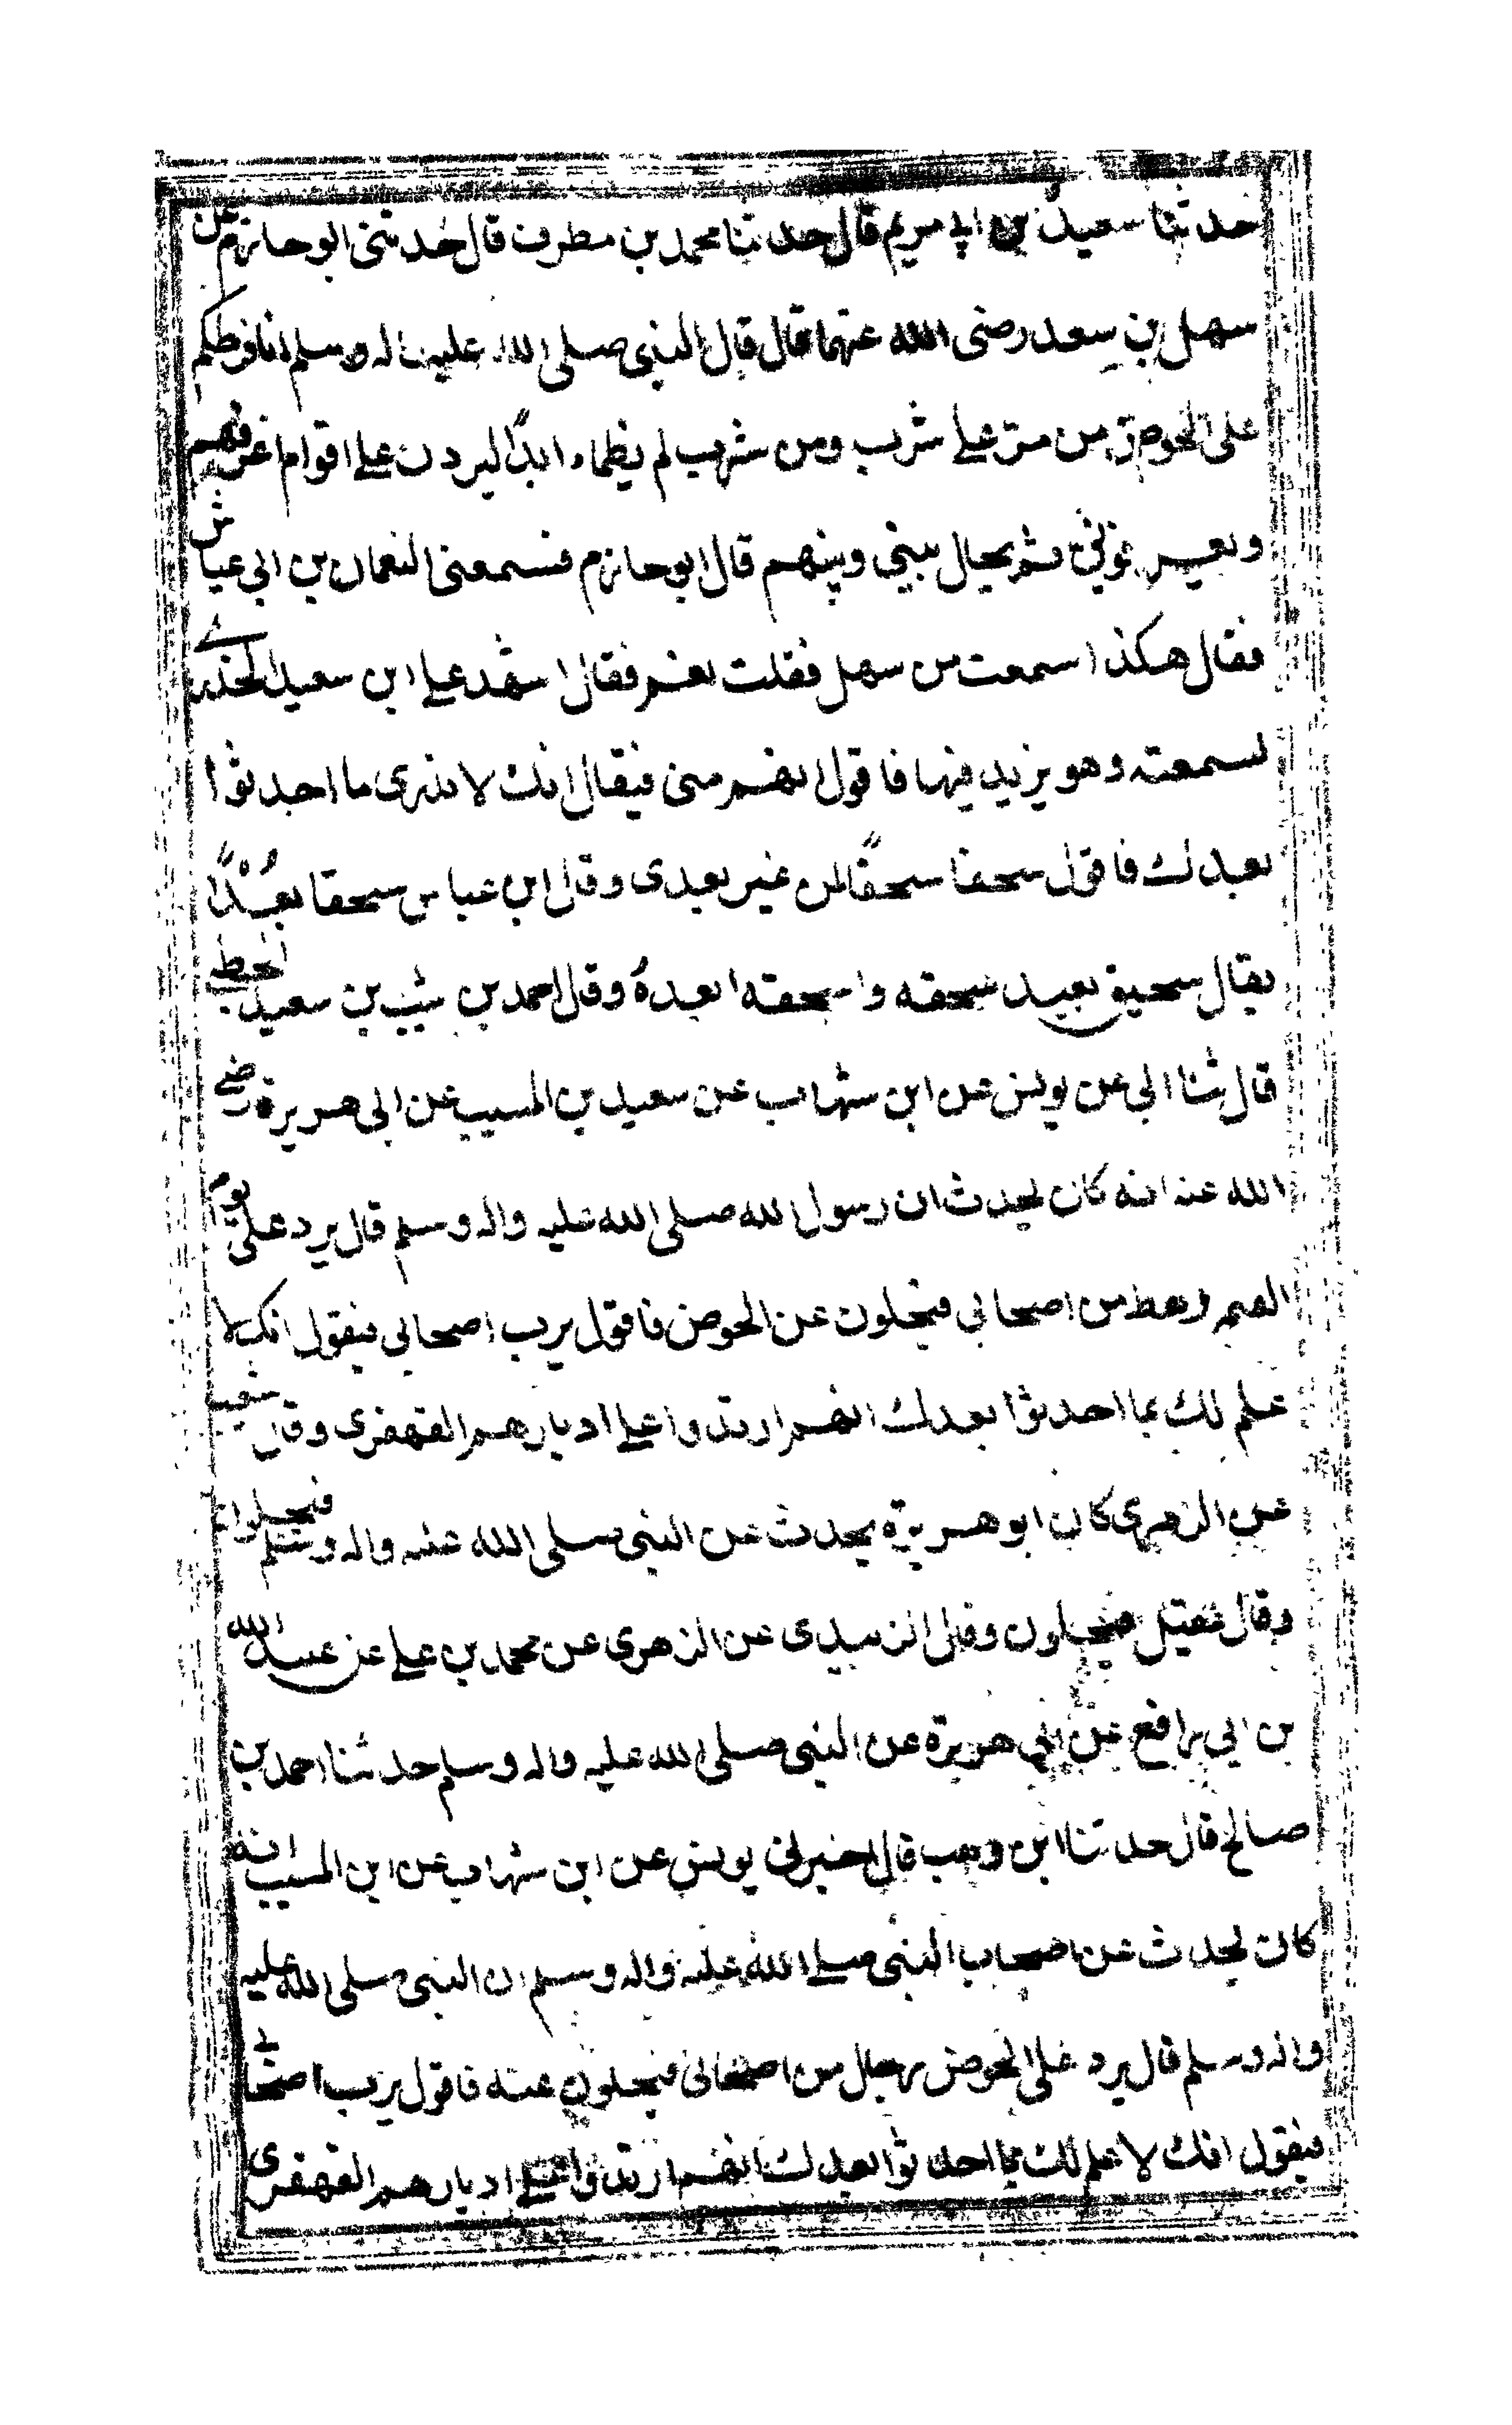 حدثنا سعيد بن ابي مريم قال حدثنا محمد بن مطرف قال حدثني ابو حازم عن
سهل بن سعد رضي الله عنهما قال قال النبي صلى الله عليه واله وسلم انا فرطكم
على الحوض من مر علي شرب ومن شرب لم يظماء ابدًا ليردن علي اقوام اعرفهم
ويعرفوني ثم يحال بيني وبينهم قال ابو حازم فسمعني النعمان بن ابي عياش
فقال هكذا سمعت من سهل فقلت نعم فقال اشهد علي ابن سعيد الخدري
لسمعته وهو يزيد فيها فاقول انهم مني فيقال انك لا تدري ما احدثوا
بعدك فاقول سحقا سحقًا لمن غير بعدي وقال ابن عباس سحقا بُعْدًا
يقال سحيق بعيد سحقه واسحقه ابعدهُ وقال احمد بن شبيب بن سعيد الحبطي
قال ثنا ابي عن يونس عن ابن شهاب عن سعيد بن المسيب عن ابي هريرة رضي
الله عنه انه كان يحدث ان رسول لله صلى الله عليه واله وسلم قال يرد علي يوم
القيمه رهط من اصحابي فيجلون عن الحوض فاقول يرب اصحابي فيقول انك لا
علم لك بما احدثوا بعدك انهم ارتدوا علي ادبارهم القهقرى وقال شعيب
عن الزهري كان ابو هريرة يحدث عن النبي صلى الله عليه واله وسلم فيجلون
وقال عقيل فيجلون وقال الزبيدي عن الزهري عن محمد بن علي عن عبيد الله
بن ابي رافع عن ابي هريرة عن النبي صلى لله عليه واله وسلم حدثنا احمد بن
صالح قال حدثنا ابن وهب قال اخبرني يونس عن ابن شهاب عن ابن المسيب انه
كان يحدث عن اصحاب النبي صلي الله عليه واله وسلم ان النبي صلى لله عليه
واله وسلم قال يرد علي الحوض رجال من اصحابي فيجلون عنه فاقول يرب اصحابي
فيقول انك لا علم لك بما احدثوا بعدك انهم ارتدوا علي ادبارهم القهقرى